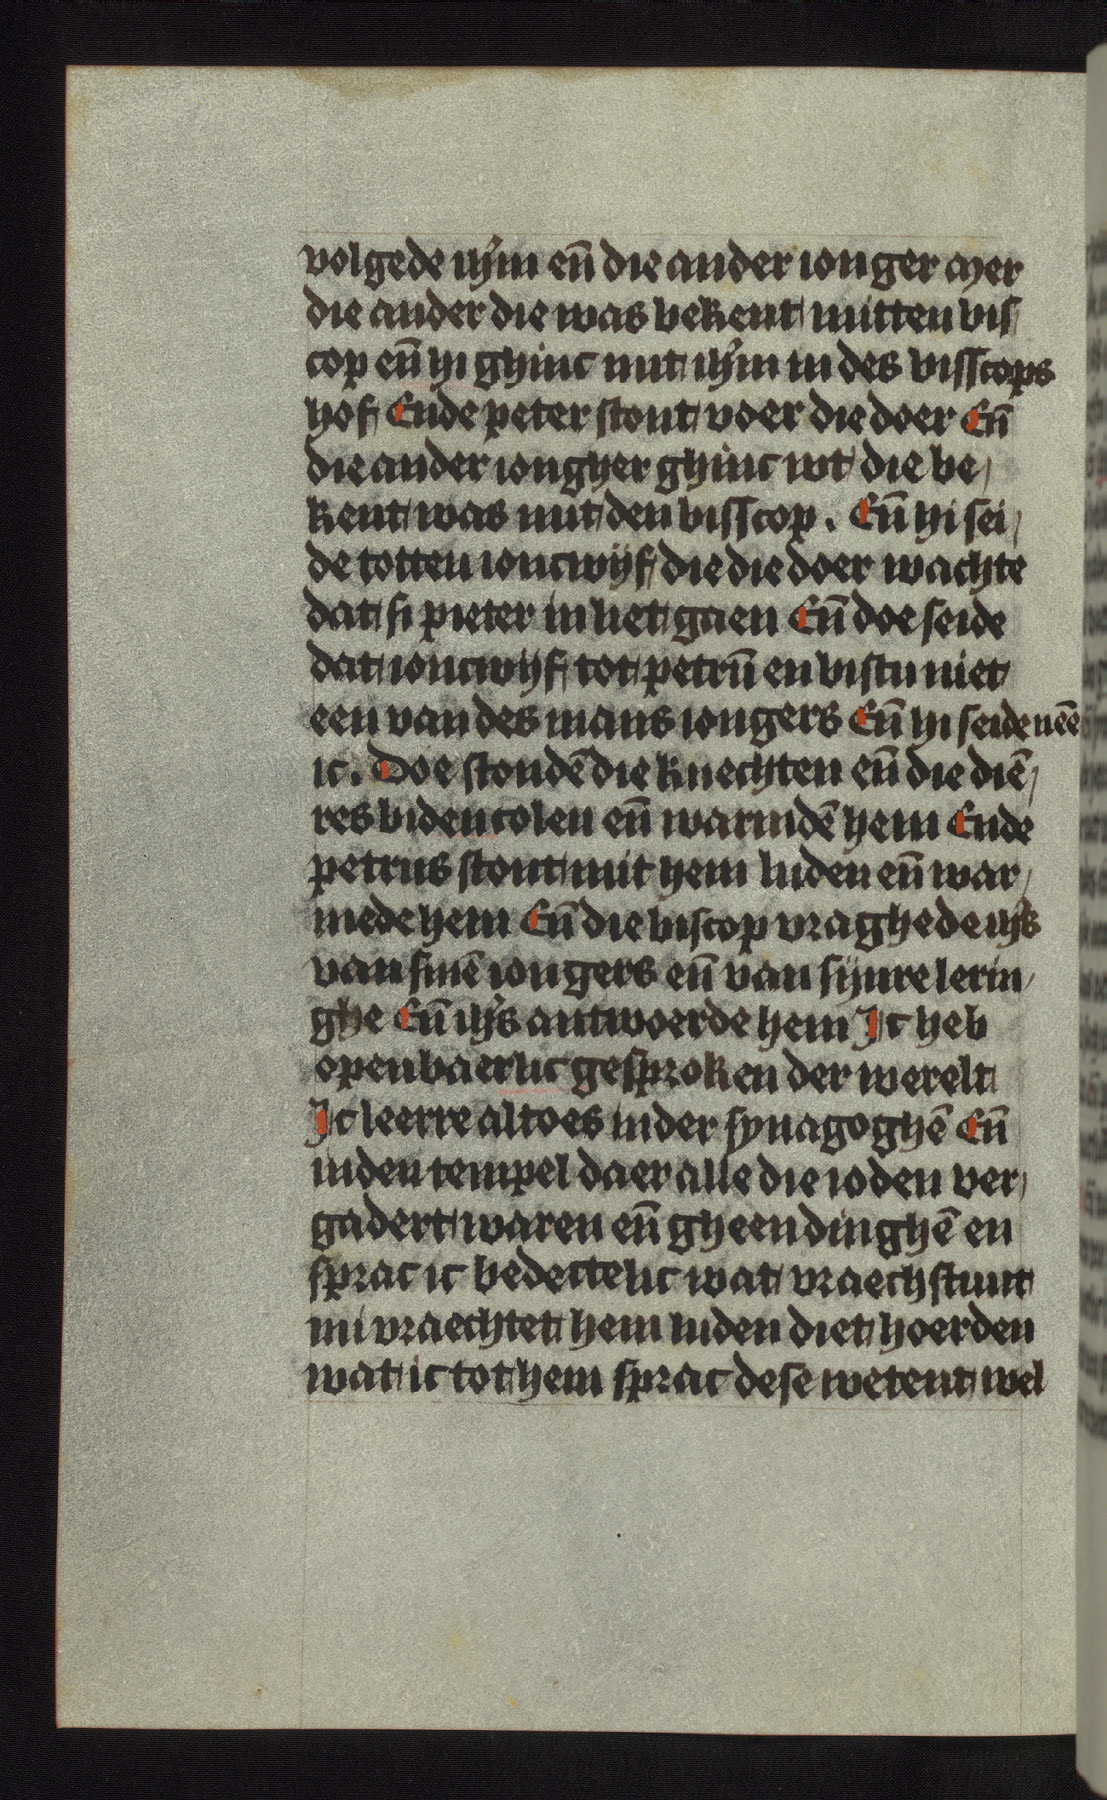 volgede ihm̄ en̄ die ander ionger mer
die ander die was bekent mitten bis
cop en̄ hi ghinc mit ihm̄ in des bisscops
hof Ende peter stont voer die doer En̄
die ander iongher ghinc wt die be
kent was mit den bisscop. En̄ hi sei
de totten ioncwijf die die doer wachte
dat si pieter in liet gaen En̄ doe seide
dat ioncwijf tot petrū en bistu niet
een van des mans iongers En̄ hi seide nēē
ic. Doe stondē die knechten en̄ die diē
res biden colen en̄ warmdē hem Ende
petrus stont mit hem luden en̄ war
mede hem En̄ die biscop vraghede ihs̄
van sinē iongers en̄ van sijnre lerin
ghe En̄ ihs̄ antwoerde hem Ic heb
openbaerlic gesproken der werelt
Ic leerre altoes inder synagoghē En̄
inden tempel daer alle die ioden ver
gadert waren en̄ gheen dinghē en
sprac ic bedectelic wat vraechstuut
mi vraechtet hem luden diet hoerden
wat ic tot hem sprac dese wetent wel